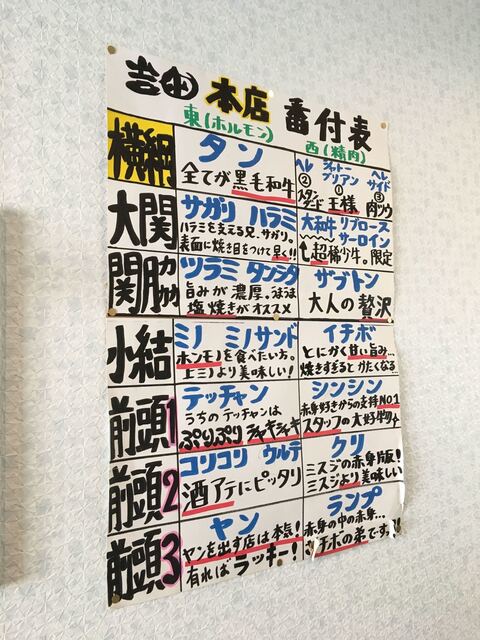 吉田 本店 番付表
東(ホルモン) 西(精肉)
横綱
タン
全てが黒毛和牛
ヘレ シャトーブリアン ヘレサイド
② ① ③
スタンダード 王様 肉汁
大関
サガリ ハラミ
ハラミを支える兄、サガリ。
表面に焼き目をつけて早く!!
大和牛 リブロース
サーロイン
超稀少牛。限定
関脇
ツラミ タンシタ
旨みが濃厚。うまうま
塩焼きがオススメ
ザブトン
大人の贅沢
小結
ミノ ミノサンド
ホンモノを食べたい方。
上ミノより美味しい!
イチボ
とにかく甘い旨み…
焼きすぎるとかたくなる…
前頭1
テッチャン
うちのテッチャンは
ぷりぷりシャキシャキ
シンシン
赤身好きからの支持NO1
スタッフの大好物
前頭2
コリコリ ウルテ
酒アテにピッタリ
クリ
ミスジの赤身版!
ミスジより美味しい
前頭3
ヤン
ヤンを出す店は本気!
有ればラッキー!
ランプ
赤身の中の赤身…
イチボの弟です